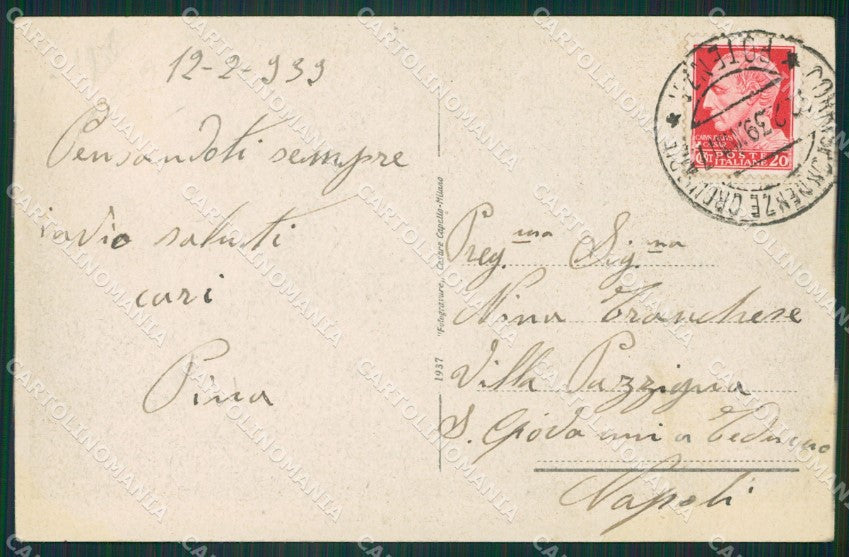 12-2-939
Pensandoti sempre
invio saluti
cari
Pina
1937 "Fotogravure, Cesare Capello-Milano
POTENZA
CORRISPONDENZE ORDINARIE
12.2.39
POSTE
ITALIANE 20
Preg.ma Sig.na
Nina Tranchese
Villa Pazzigna
S. Giovanni a Teduccio
Napoli
CARTOLINOMANIA